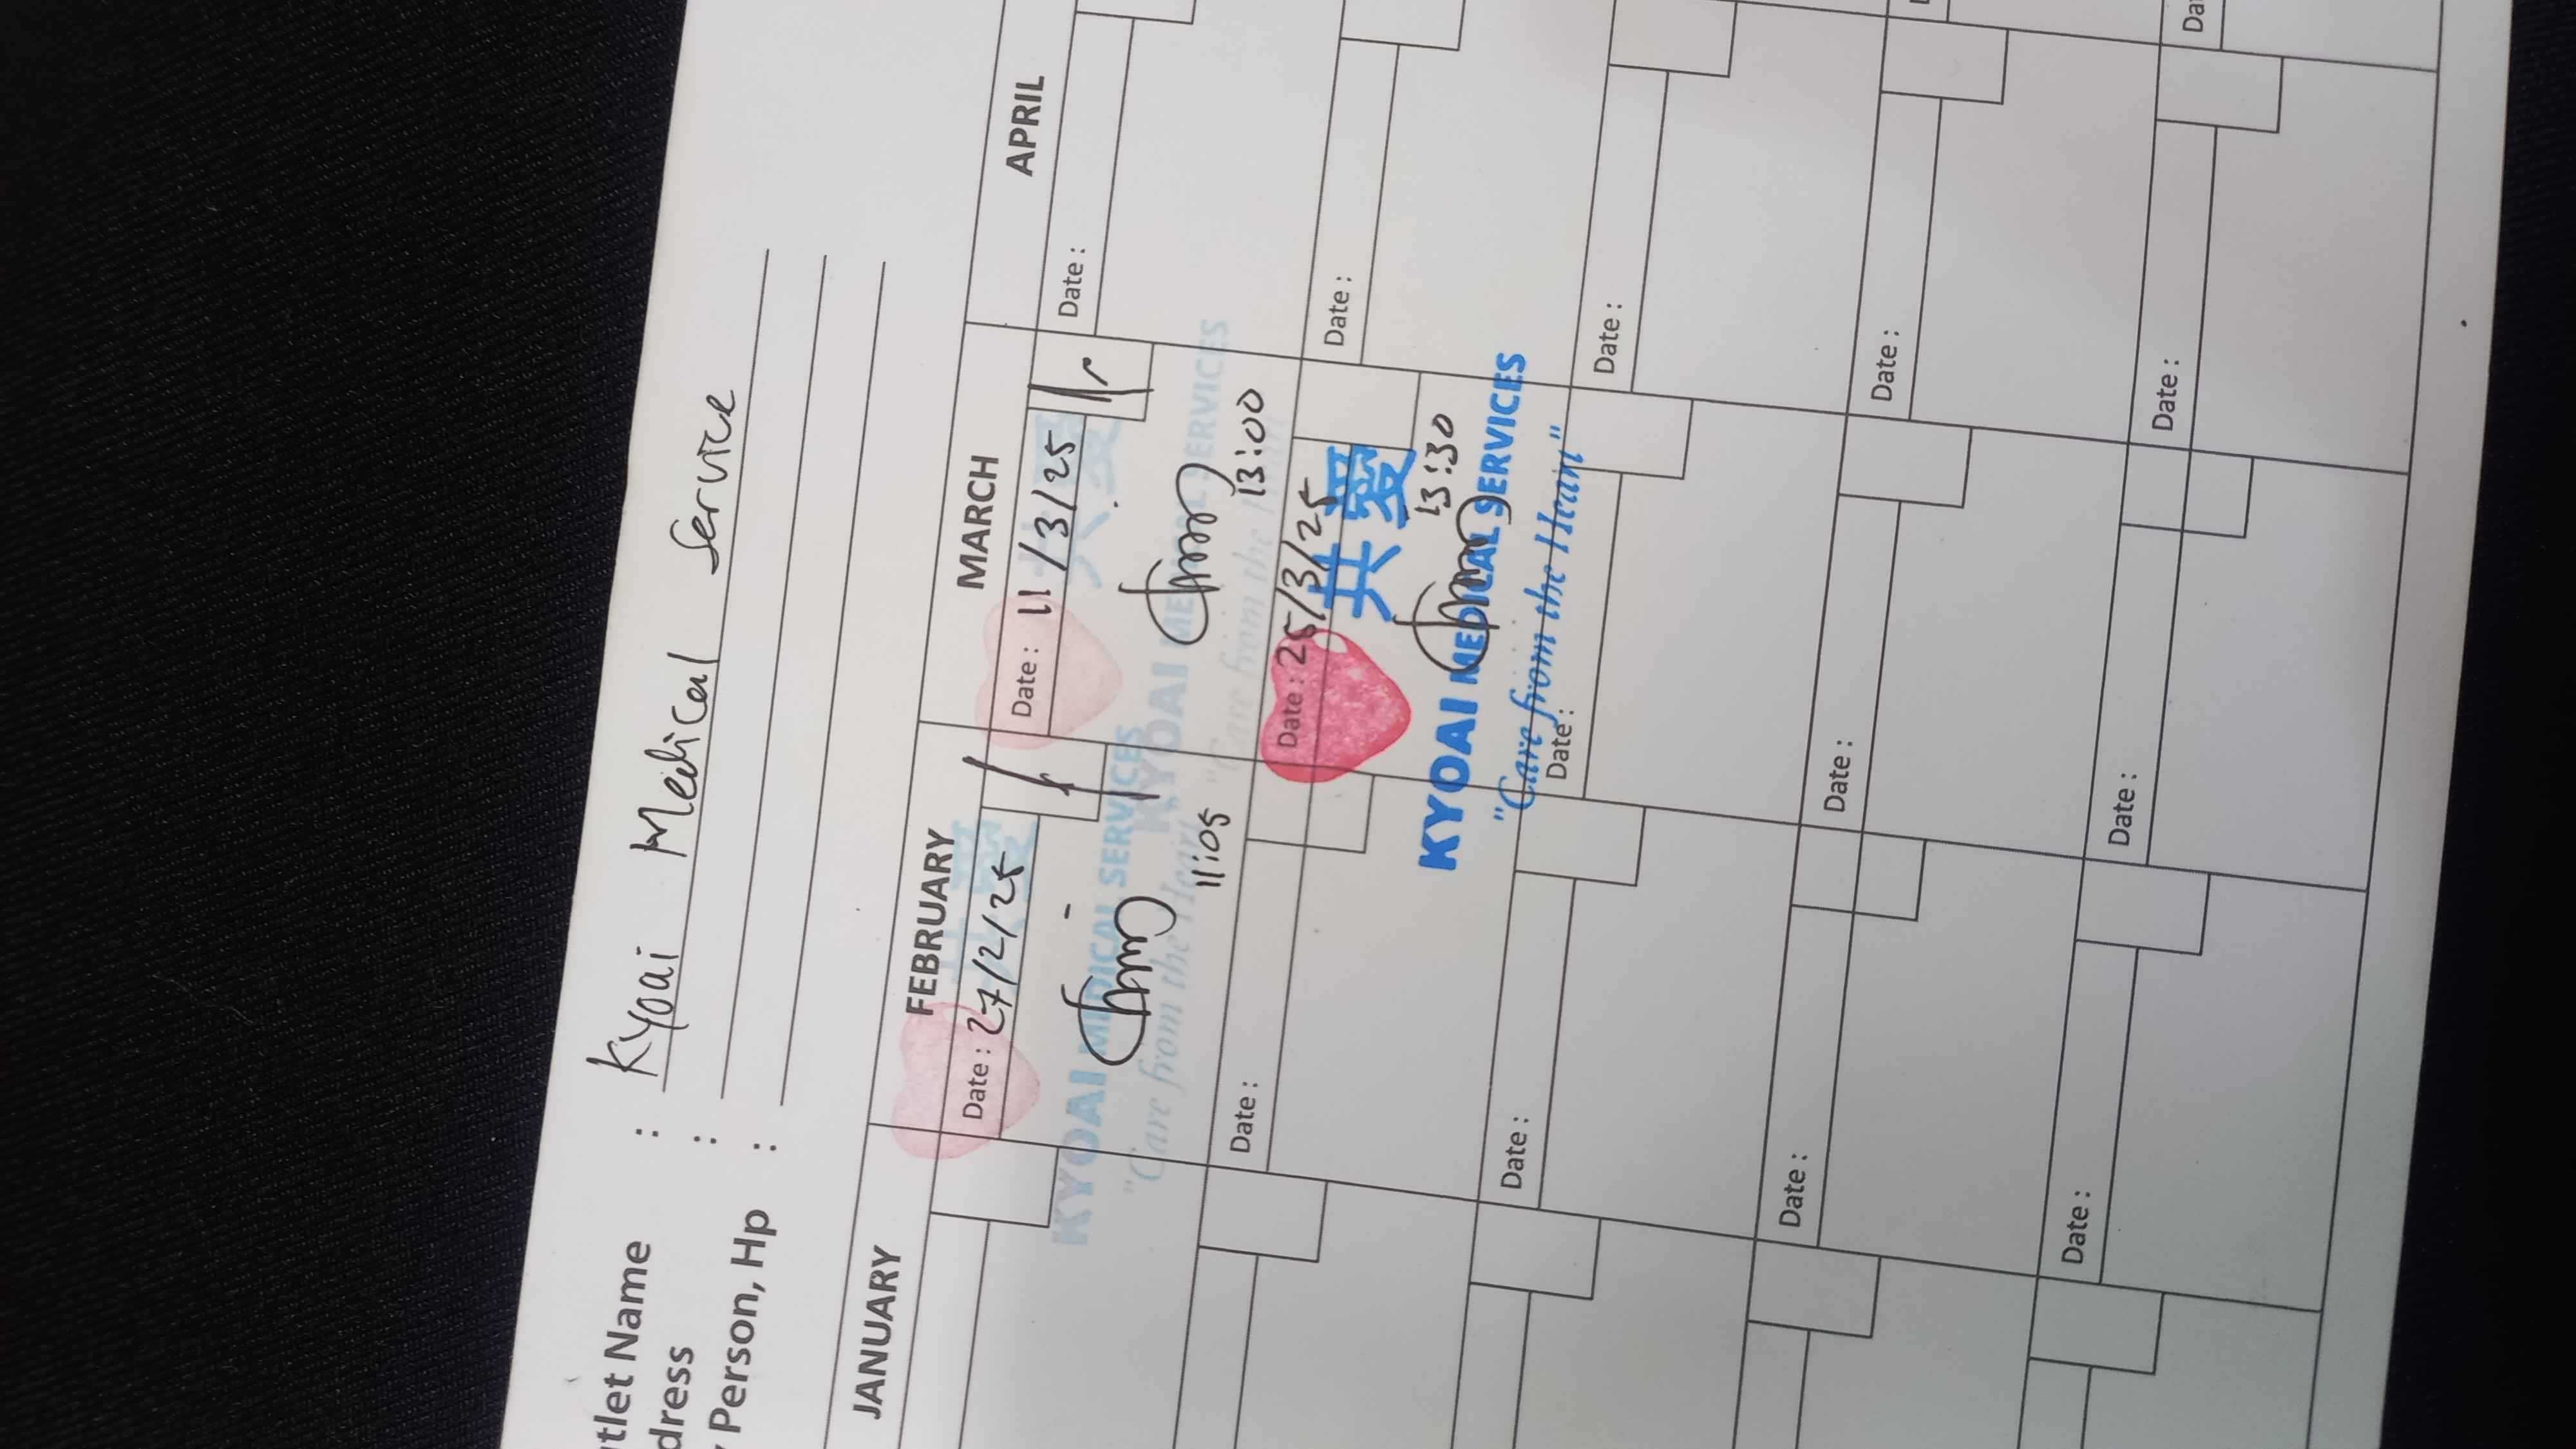 utlet Name : Kyoai Medical Service
dress :
Person, Hp :
JANUARY FEBRUARY MARCH APRIL
Date : 27/2/25
KYOAI MEDICAL SERVICES
"Care from the Heart"
11:05
Date : 11/3/25
共愛
KYOAI MEDICAL SERVICES
"Care from the Heart"
13:00
Date :
Date :
Date : 25/3/25
共愛
13:30
KYOAI MEDICAL SERVICES
"Care from the Heart"
Date :
Date :
Date :
Date :
Date :
Date :
Date :
Date :
Date :
Date :